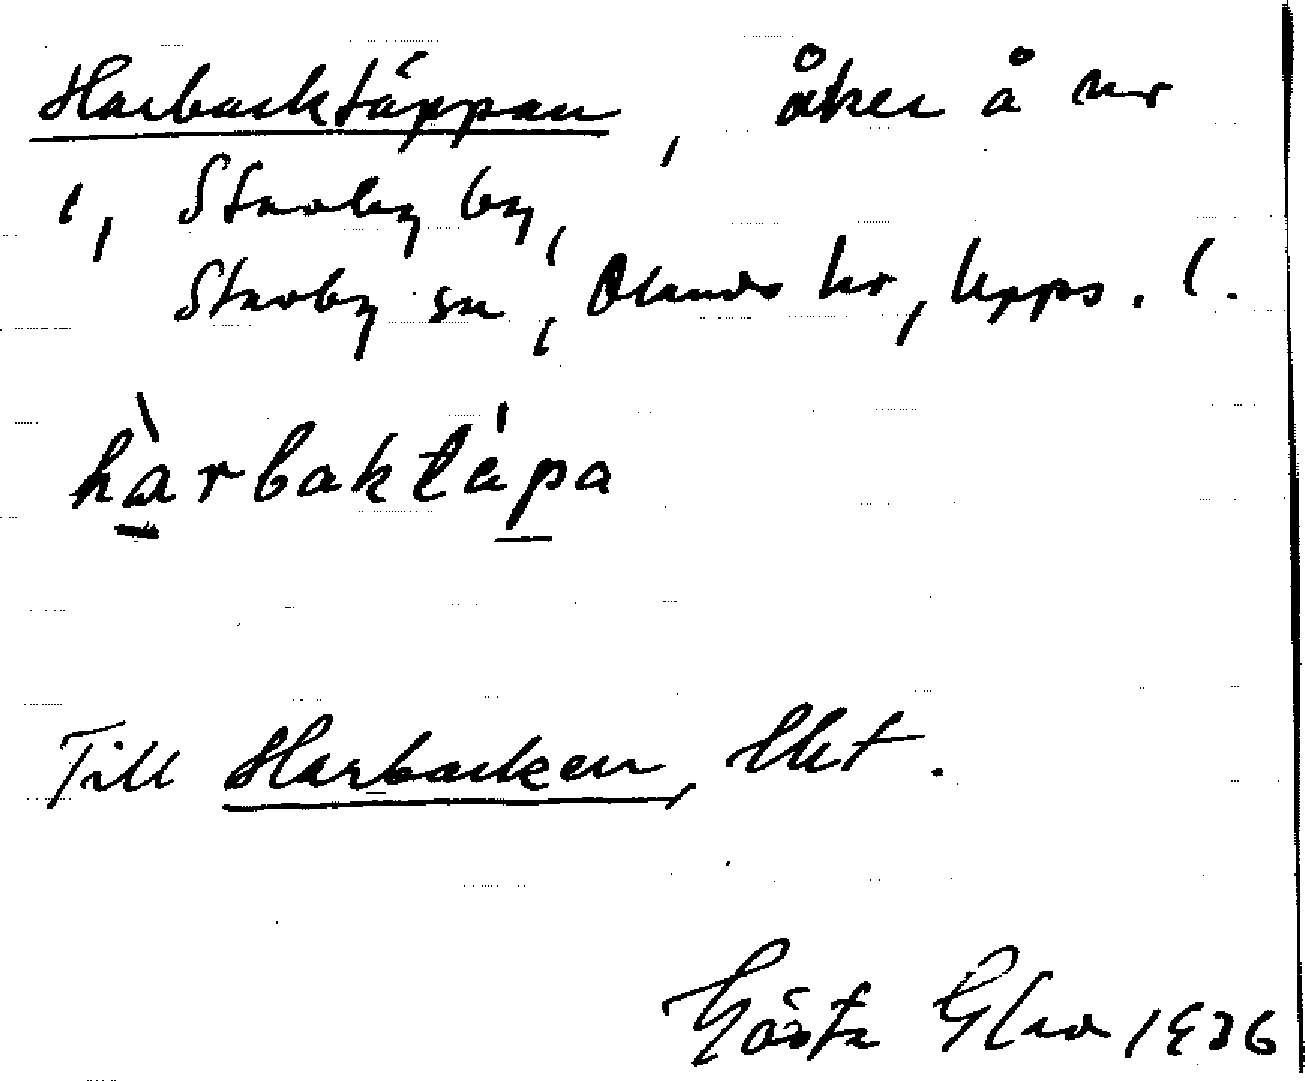 Harbacktäppan, åker å nr
1, Stavby by,
Stavby sn, Olands hr, Upps. l.
hàrbaktäpa
Till Harbacken, Lkt.
Gösta 1936